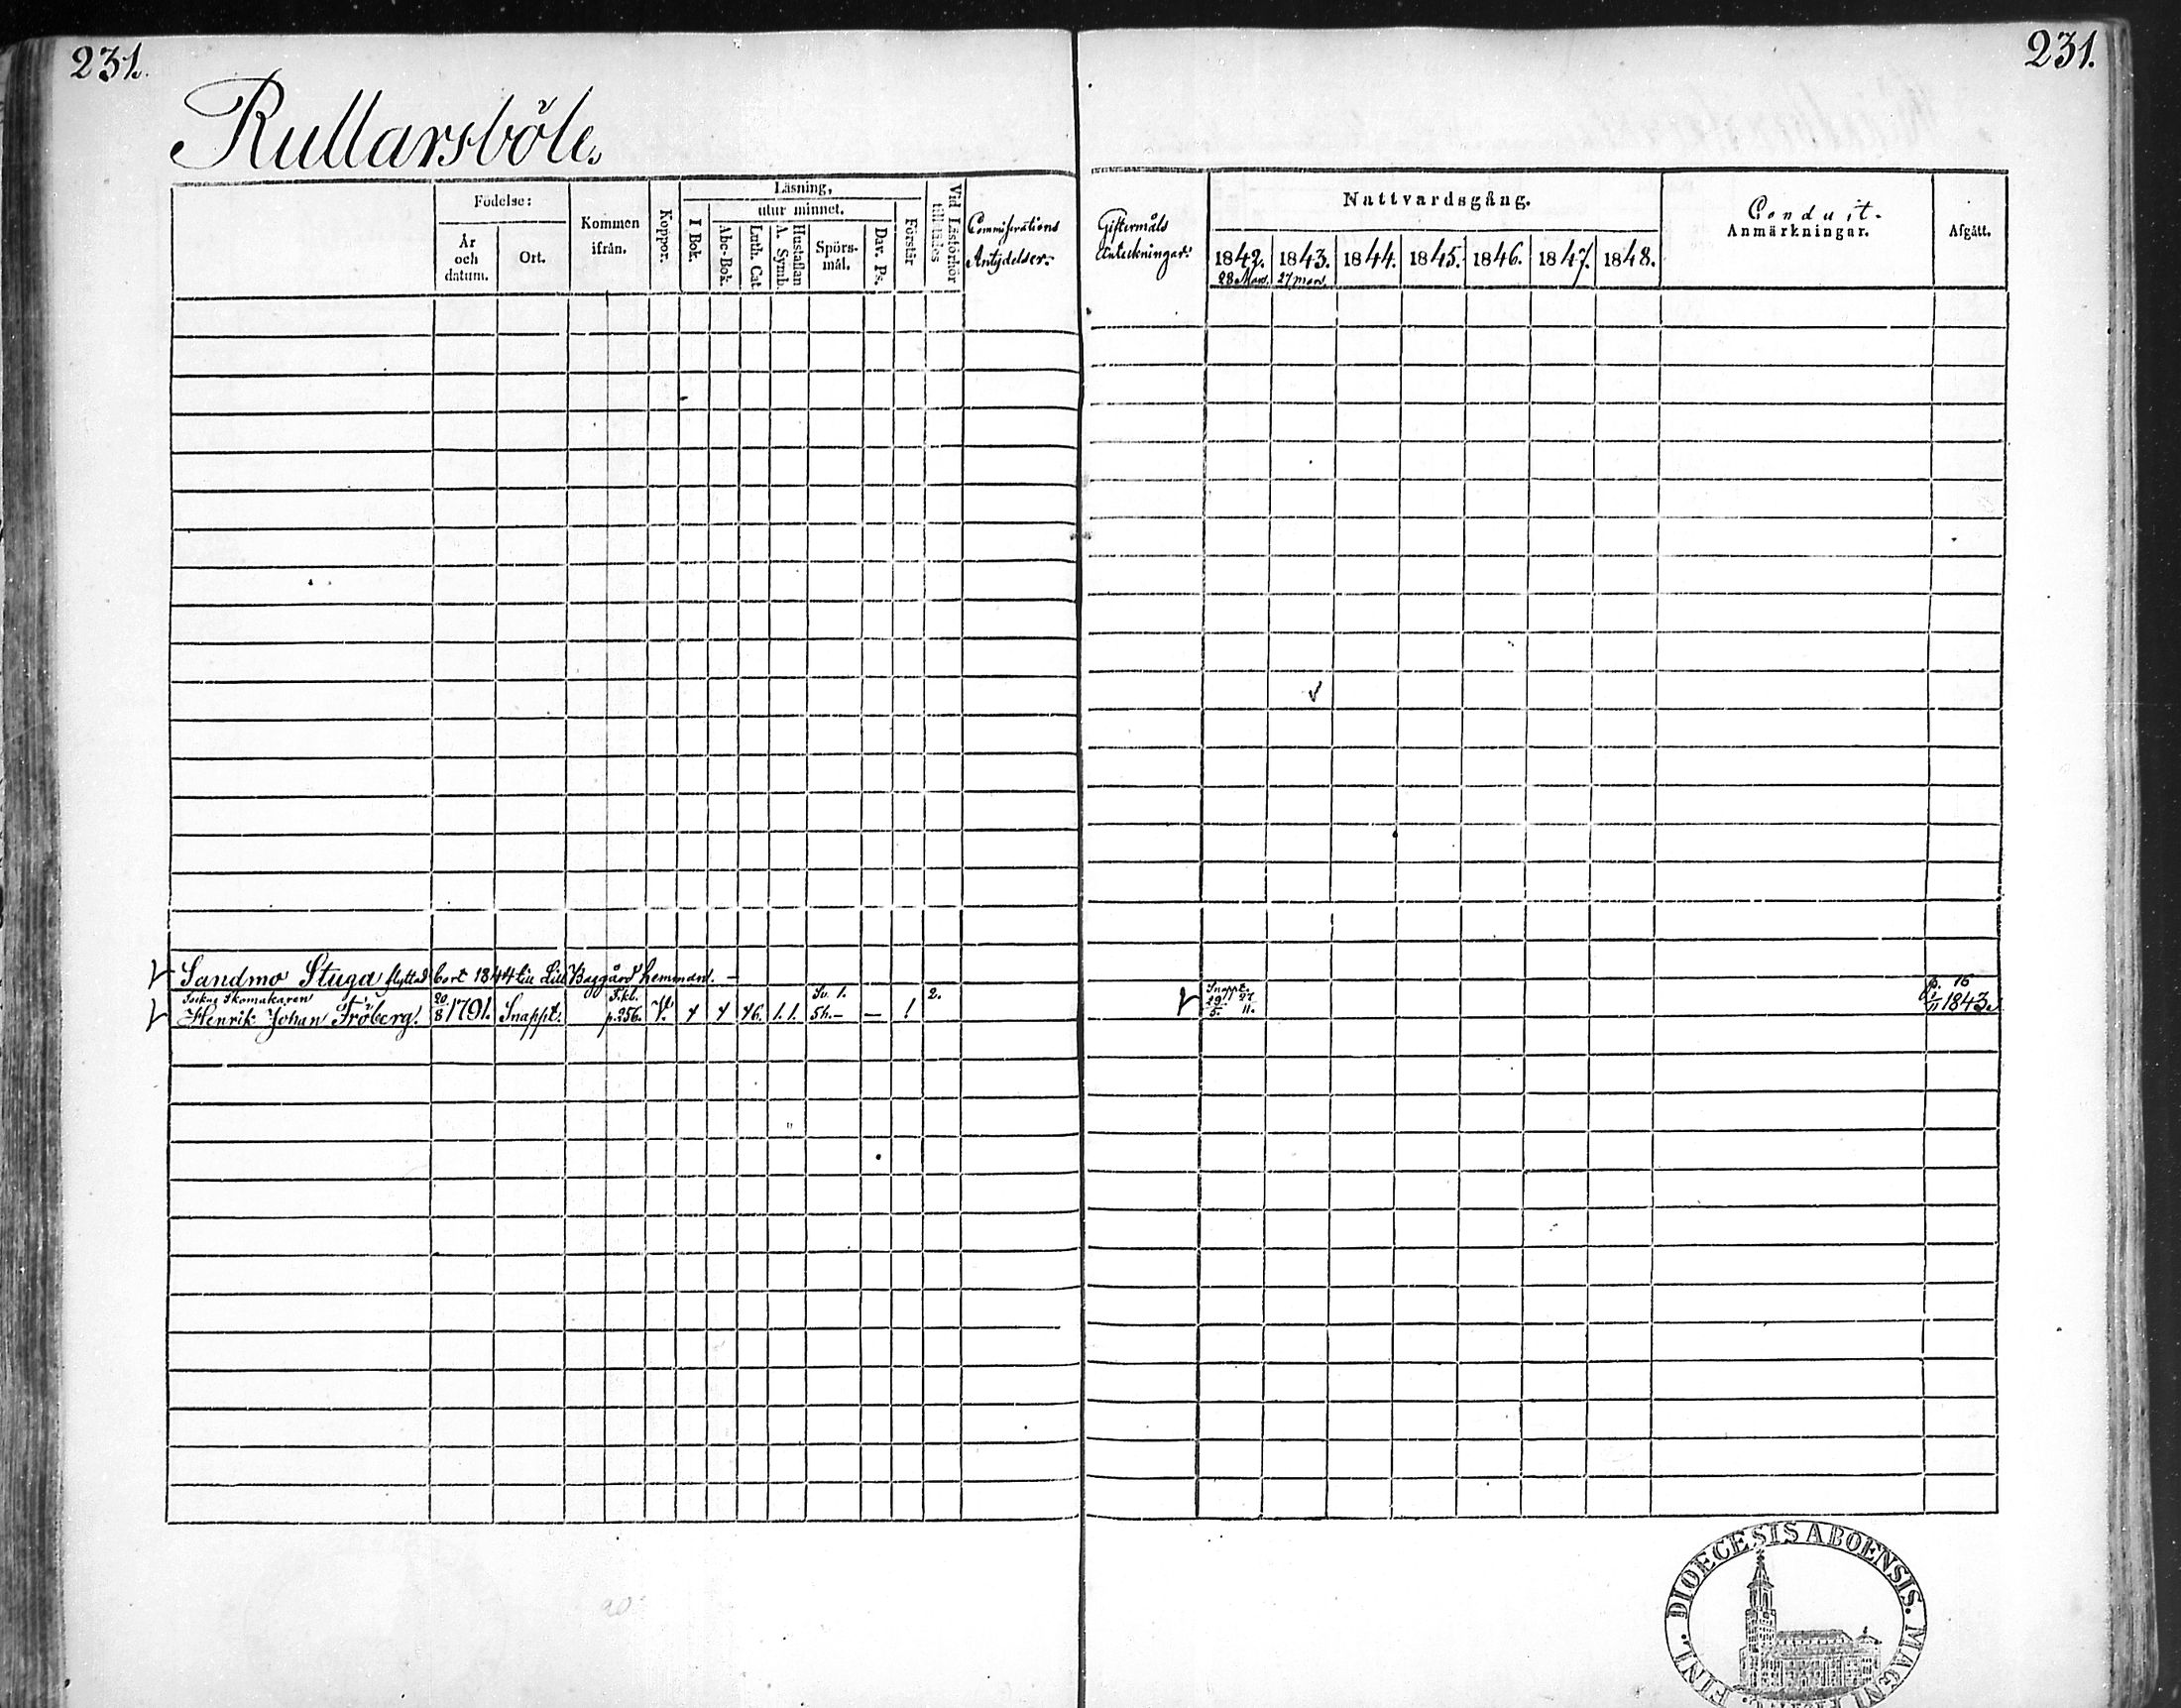 231. 231.
Rullarsböle
Födelse:
År och datum.
Ort.
Kommen ifrån.
Koppor.
Läsning,
I Bok.
utur minnet.
Abc-Bok.
Luth. Cat
Hustaflan A. Symb.
Spörsmål.
Dav. Ps.
Förstår
Vid Läsförhör tillstädes
Antydelser.
Giftermåls Anteckningar.
Nattvardsgång.
1842. 1843. 1844. 1845. 1846. 1847. 1848.
28 Mars. 27 mars.
Conduit-
Anmärkningar.
Afgått.
Sandmo Stuga flyttad bort 1844 till Lill Byggård hemman. –
Sockne Skomakaren Sv. 1. 2. Snappt. p. 16
Henrik Johan Fröberg. 20/8 1791. Snappt. p. 256. V. 1. 1. 5h.– — ! 29/5. 27/11. 1843.
DIOECESIS ABOENSIS. MAGNI FINL.